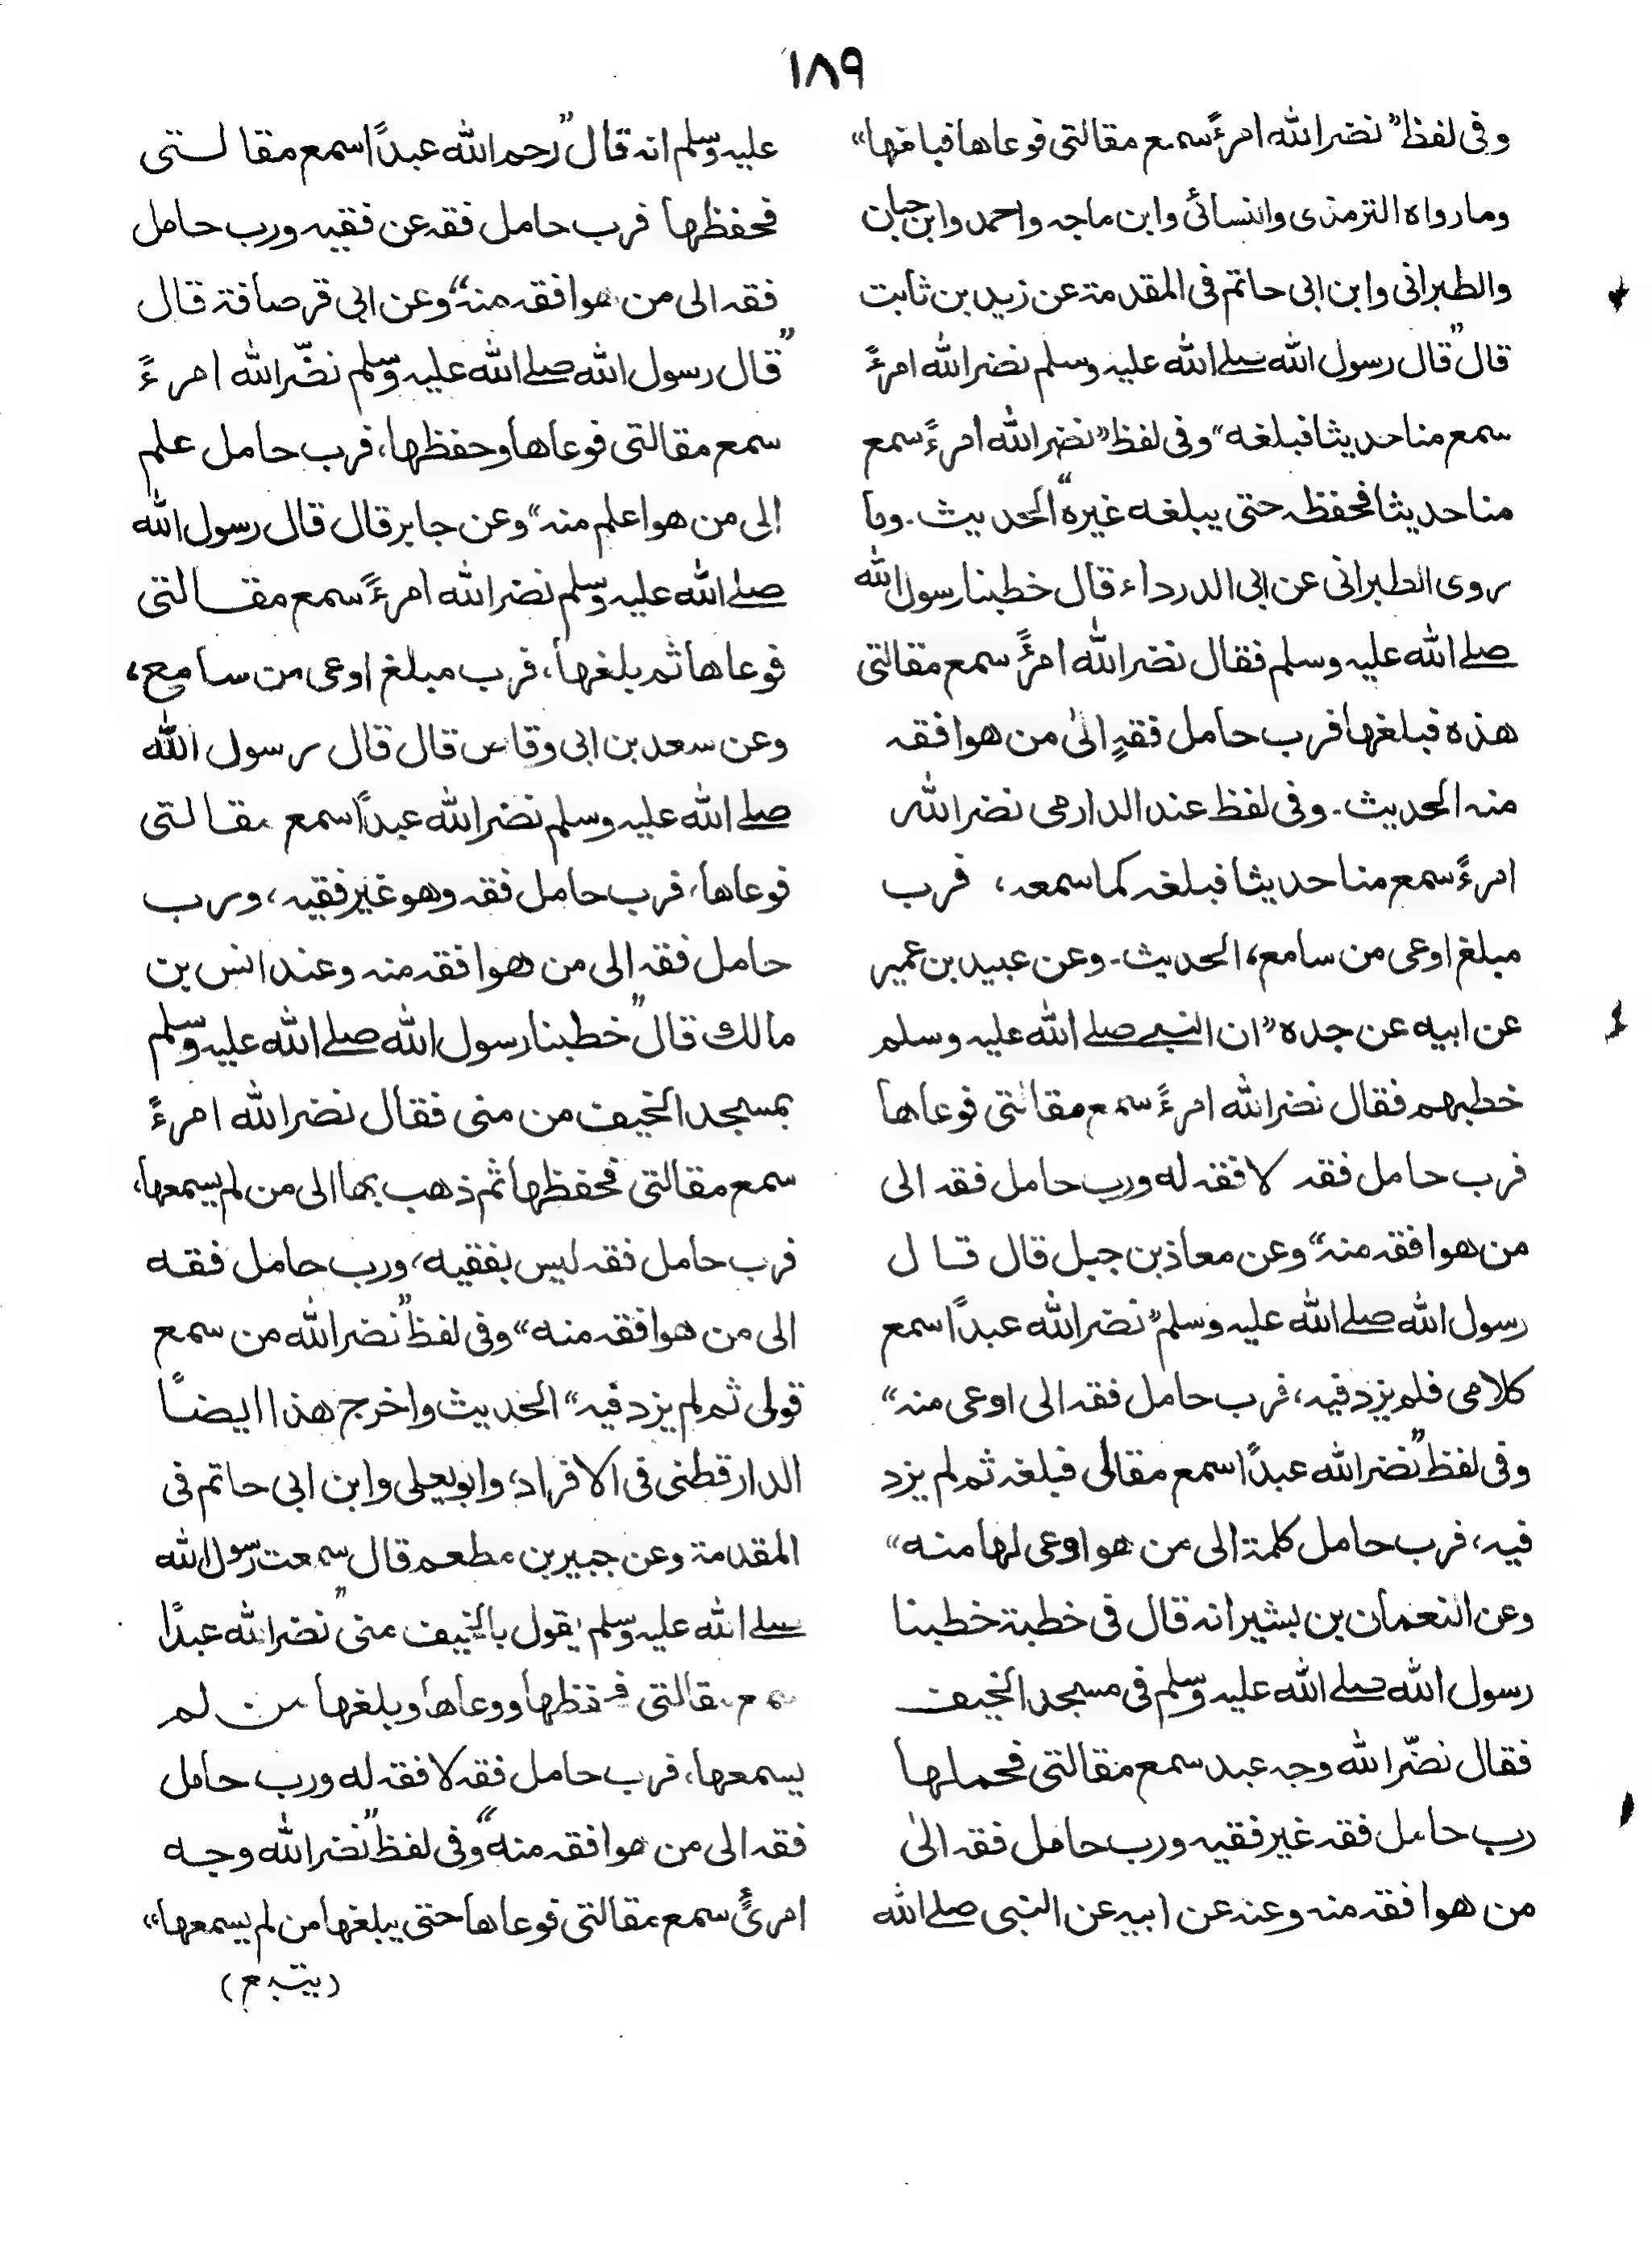 ١٨٩
وفى لفظ ”نضر الله امرءً سمع مقالتى فوعاها فبلغها“
وما رواه الترمذى والنسائى وابن ماجه واحمد وابن حبان
والطبرانى وابن ابى حاتم فى المقدمة عن زيد بن ثابت
قال ”قال رسول الله صلے الله عليه وسلم نضر الله امرءً
سمع منا حديثا فبلغه“ وفى لفظ ”نضر الله امرءً سمع
منا حديثا فحفظه حتى يبلغه غيره“ الحديث. وما
روى الطبرانى عن ابى الدرداء قال خطبنا رسول الله
صلے الله عليه وسلم فقال نضر الله امرءً سمع مقالتى
هذه فبلغها فرب حامل فقهٍ الىٰ من هو افقه
منه الحديث. وفى لفظ عند الدارمى نضر الله
امرءً سمع منا حديثا فبلغه كما سمعه، فرب
مبلغ اوعى من سامع، الحديث. وعن عبيد بن عمير
عن ابيه عن جده ”ان النبے صلے الله عليه وسلم
خطبهم فقال نضر الله امرءً سمع مقالتى فوعاها
فرب حامل فقه لا فقه له ورب حامل فقه الى
من هو افقه منه“ وعن معاذ بن جبل قال قال
رسول الله صلے الله عليه وسلم ”نضر الله عبداً سمع
كلامى فلم يزد فيه، فرب حامل فقه الى اوعى منه“
وفى لفظ ”نضر الله عبداً سمع مقالى فبلغه ثم لم يزد
فيه، فرب حامل كلمة الى من هو اوعى لها منه“
وعن النعمان بن بشير انه قال فى خطبة خطبنا
رسول الله صلے الله عليه وسلم فى مسجد الخيف
فقال نضّر الله وجه عبد سمع مقالتى فحملها
رب حامل فقه غير فقيه ورب حامل فقه الىٰ
من هو افقه منه وعنه عن ابيه عن النبى صلے الله
عليه وسلم انه قال ”رحم الله عبداً سمع مقالتى
فحفظها فرب حامل فقه عن فقيه ورب حامل
فقه الى من هو افقه منه“ وعن ابى قرصافة قال
”قال رسول الله صلے الله عليه وسلم نضّر الله امرءً
سمع مقالتى فوعاها وحفظها، فرب حامل علم
إلى من هو اعلم منه“ وعن جابر قال قال رسول الله
صلے الله عليه وسلم نضر الله امرءً سمع مقالتى
فوعاها ثم بلغها، فرب مبلغ اوعى من سامع،
وعن سعد بن ابى وقاص قال قال رسول الله
صلے الله عليه وسلم نضر الله عبداً سمع مقالتى
فوعاها، فرب حامل فقه وهو غير فقيه، ورب
حامل فقه الى من هو افقه منه وعند انس بن
مالك قال ”خطبنا رسول الله صلے الله عليه وسلم
بمسجد الخيف من منى فقال نضر الله امرءً
سمع مقالتى فحفظها ثم ذهب بها الى من لم يسمعها،
فرب حامل فقه ليس بفقيه، ورب حامل فقه
الى من هو افقه منه“ وفى لفظ ”نضر الله من سمع
قولى ثم لم يزد فيه“ الحديث واخرج هذا ايضاً
الدارقطنى فى الافراد، وابو يعلى وابن ابى حاتم فى
المقدمة وعن جبير بن مطعم قال سمعت رسول الله
صلے الله عليه وسلم يقول بالخيف منى ”نضر الله عبداً
سمع مقالتى فحفظها ووعاها وبلغها من لم
يسمعها، فرب حامل فقه لا فقه له ورب حامل
فقه الى من هو افقه منه“ وفى لفظ ”نضر الله وجه
امرئٍ سمع مقالتى فوعاها حتى يبلغها من لم يسمعها“
(يتبع)